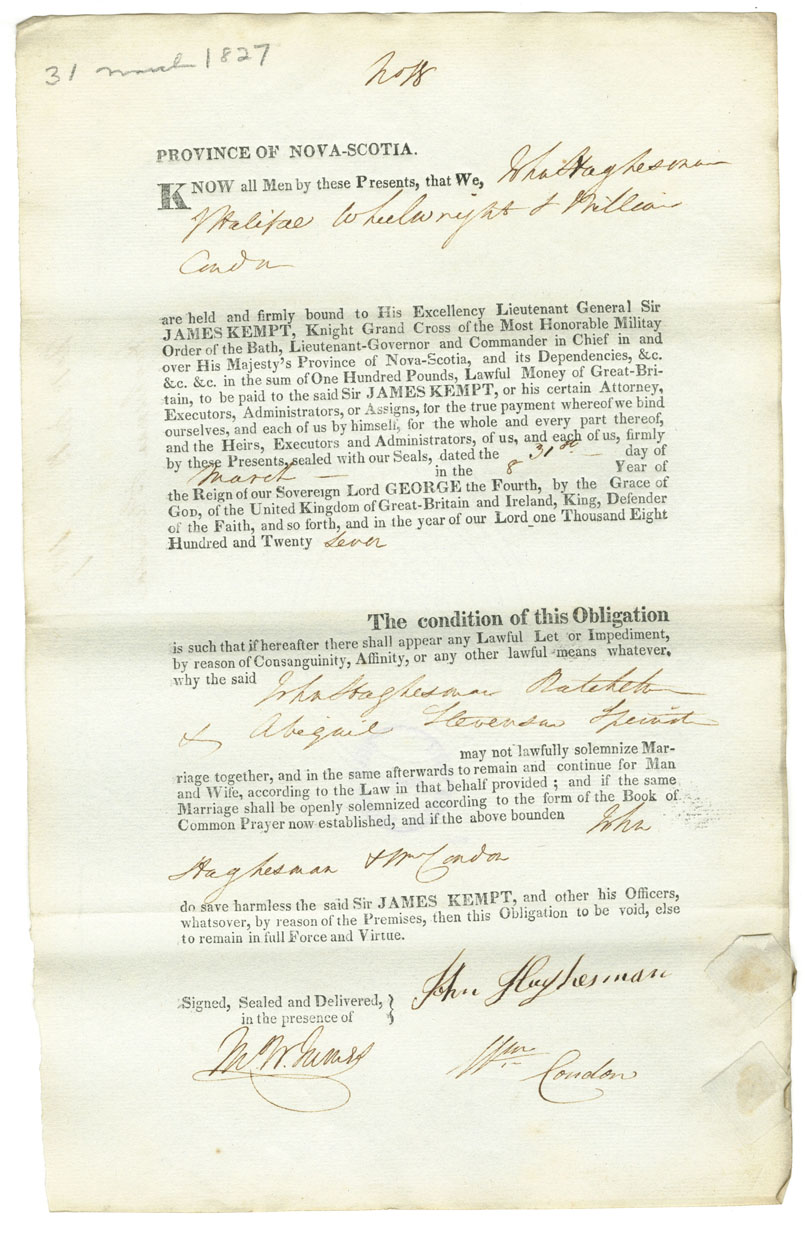 31 March 1827
PROVINCE OF NOVA-SCOTIA.
KNOW all Men by these Presents, that We, John Haghesman
Halifax Wheelwright & William
Condon
are held and firmly bound to His Excellency Lieutenant General Sir
JAMES KEMPT, Knight Grand Cross of the Most Honorable Militay
Order of the Bath, Lieutenant-Governor and Commander in Chief in and
over His Majesty's Province of Nova-Scotia, and its Dependencies, &c.
&c. &c. in the sum of One Hundred Pounds, Lawful Money of Great-Bri-
tain, to be paid to the said Sir JAMES KEMPT, or his certain Attorney,
Executors, Administrators, or Assigns, for the true payment whereof we bind
ourselves, and each of us by himself, for the whole and every part thereof,
and the Heirs, Executors and Administrators, of us, and each of us, firmly
by these Presents, sealed with our Seals, dated the 31st day of
March in the 8 Year of
the Reign of our Sovereign Lord GEORGE the Fourth, by the Grace of
GOD, of the United Kingdom of Great-Britain and Ireland, King, Defender
of the Faith, and so forth, and in the year of our Lord one Thousand Eight
Hundred and Twenty Seven
The condition of this Obligation
is such that if hereafter there shall appear any Lawful Let or Impediment,
by reason of Consanguinity, Affinity, or any other lawful means whatever,
why the said John Haghesman Batchelor
& Abigail Stevenson Spinster
may not lawfully solemnize Mar-
riage together, and in the same afterwards to remain and continue for Man
and Wife, according to the Law in that behalf provided ; and if the same
Marriage shall be openly solemnized according to the form of the Book of
Common Prayer now established, and if the above bounden John
Haghesman & Wm Condon
do save harmless the said Sir JAMES KEMPT, and other his Officers,
whatsover, by reason of the Premises, then this Obligation to be void, else
to remain in full Force and Virtue.
Signed, Sealed and Delivered, } John Hughesman
in the presence of
Wm Condon